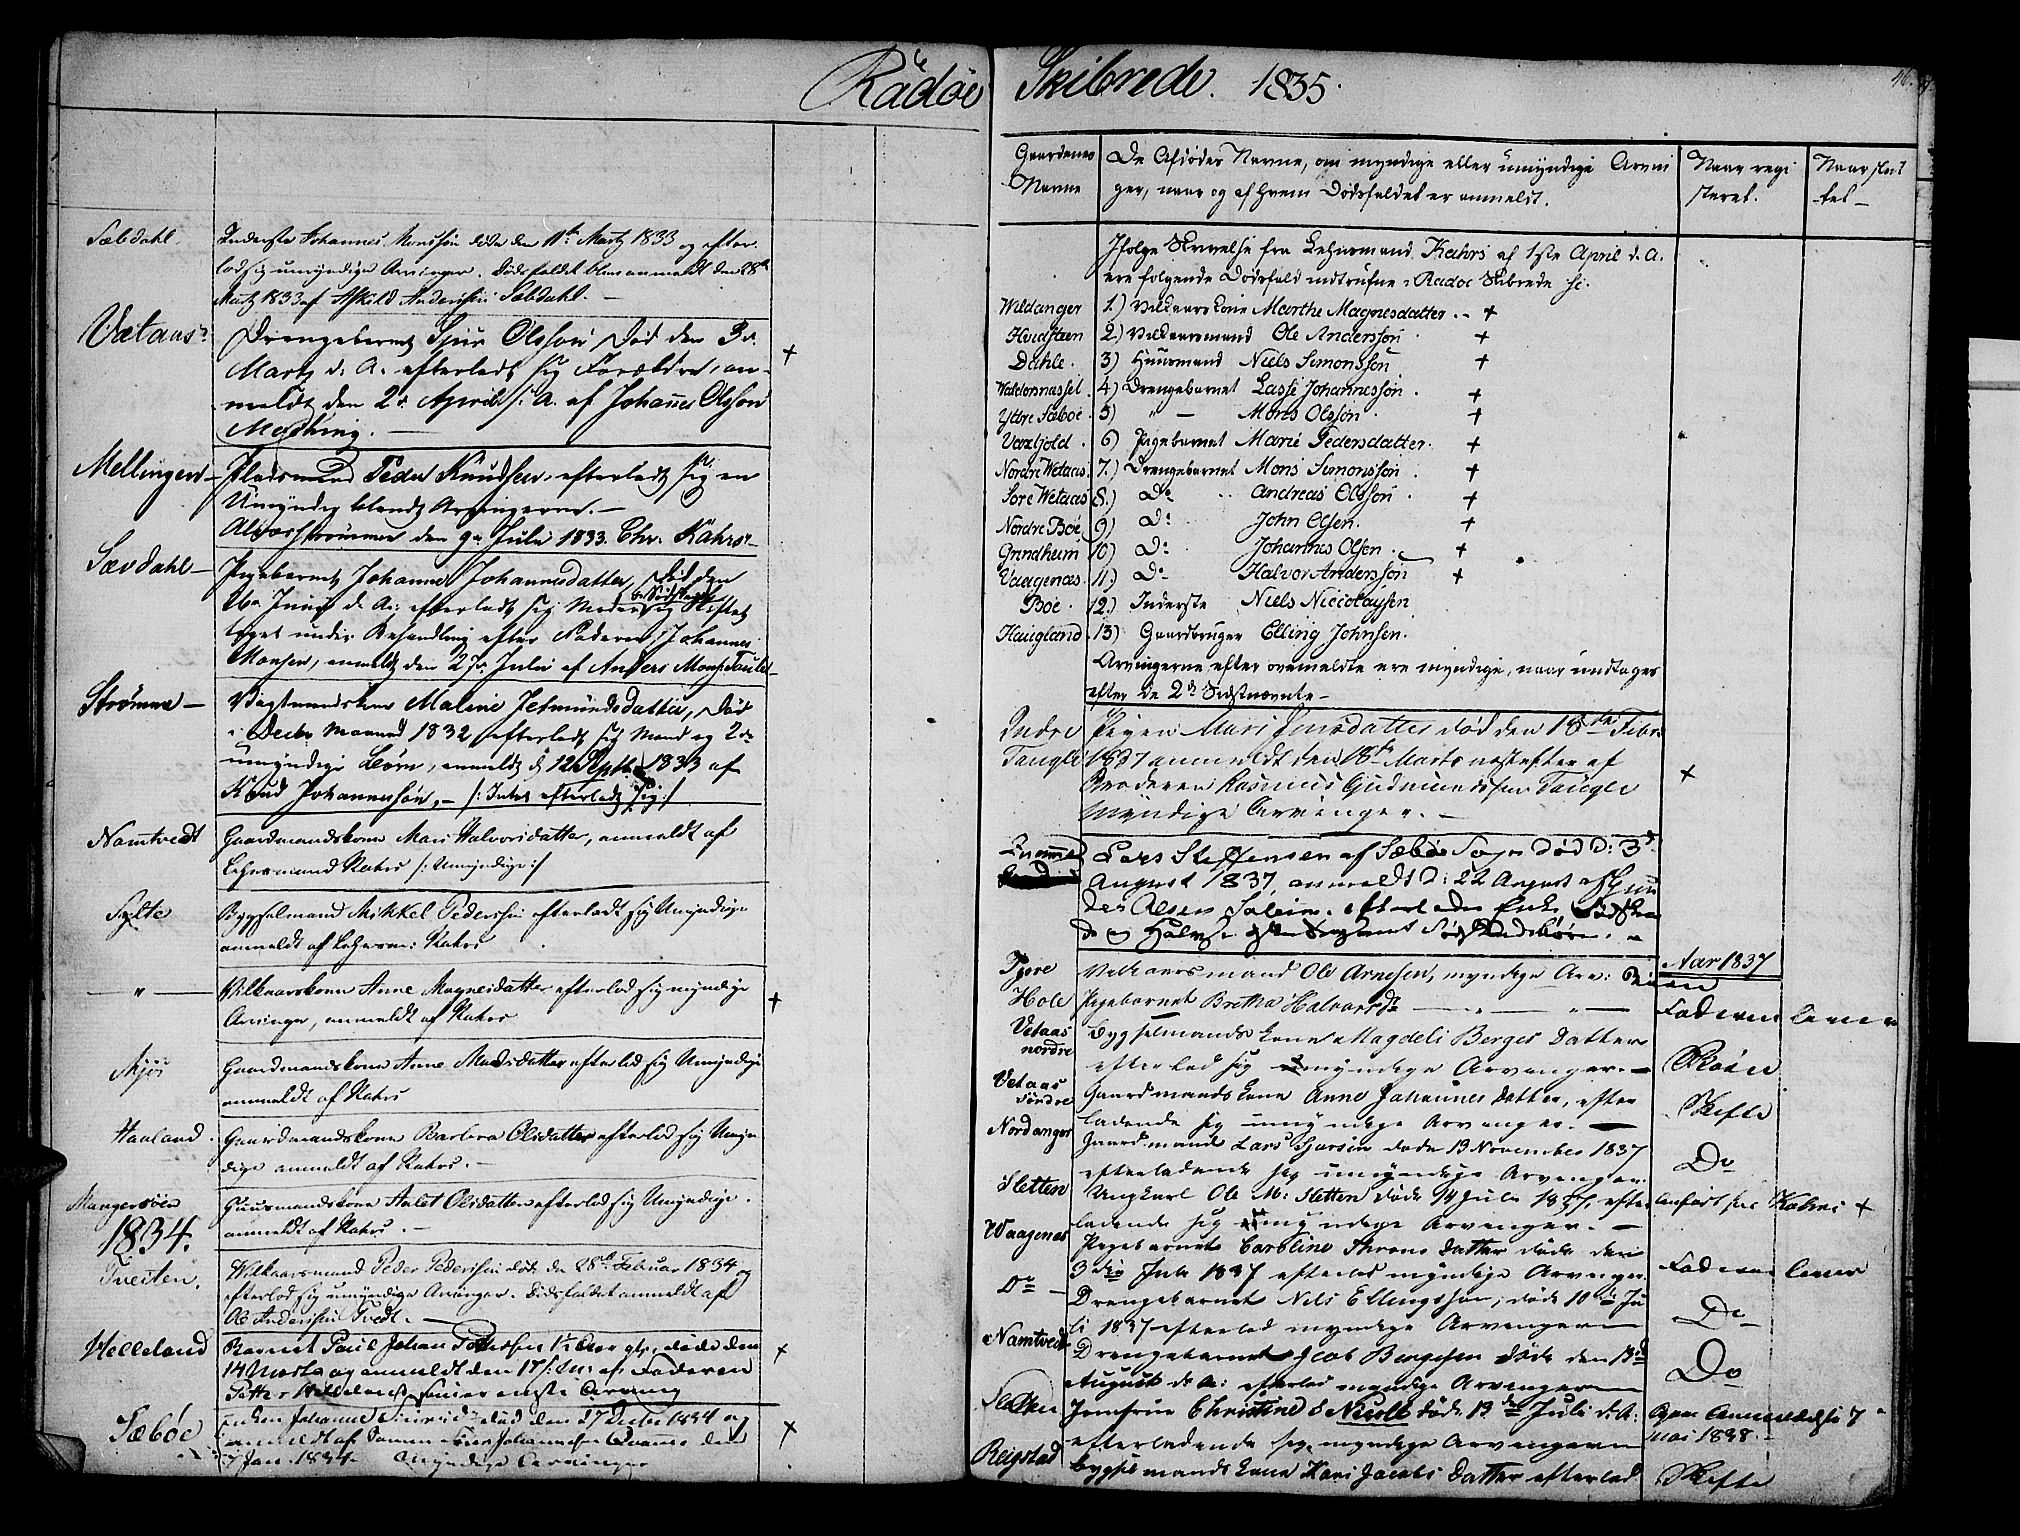 Radøe Skibrede. 1835.
46.
Sæbdahl.
Inderste Johannes Monssøn døde den 11te Martz 1833 og efter
lod sig umyndige Arvinger. Dødsfaldet blev anmeldt den 28de
Martz 1833 af Askild Anderssøn Sæbdahl. —
Vætaas
Drengebarnet Sjur Olssøn død den 3de
Martz d. A. efterladt sig Forældre, an-
meldt den 2de April s. A. af Johannes Olssøn
Mellingen —
Pladsmand Peder Knudsen, efterladt sig en
Umyndig blandt Arvingerne. —
Alverstrømmen den 9de Julii 1833. Chr. Kahrs —
Sævdahl —
Pigebarnet Johanne Johannesdatter, død den
16de Junii d. A. efterladt sig Moder og Sødskende
taget under Behandling efter Faderen Johannes
Monsen, anmeldt den 27de Julii af Anders Monsen
Strømme —
Malene Jetmundsdatter, død
i Decbr Maaned 1832 efterladt sig Mand og 2de
umyndige Børn, anmeldt d. 12 Septbr 1833 af
Knud Johannessøn, — /: Intet efterladt sig :/
Namtvedt
Gaardmandskone Mari Halvorsdatter, anmeldt af
Lehnsmand Kahrs /: Umyndige :/
Sylte
Bygselmand Mikkel Pederssøn efterladt sig Umyndige
anmeldt af Lehnsm: Kahrs
— " —
Vilkaarskone Anne Magnesdatter efterlod sig myndige
Arvinger, anmeldt af Kahrs
Mjøs
Gaardmandskone Anne Madsdatter efterlod sig Umyndige
anmeldt af Kahrs
Haaland.
Gaardmandskone Barbra Olsdatter efterlod sig Umyn
dige anmeldt af Kahrs. —
Mangersøen
Huusmandskone Olsdatter efterlod sig Umyndige.
anmeldt af Kahrs. —
1834.
Tveiten.
Vilkaarsmand Peder Pederssøn døde den 28de Februar 1834 og
efterlod sig umyndige Arvinger. Dødsfaldet anmeldt af
Ole Anderssøn Tvedt. —
Helleland
Barnet Paul Johan Pettersen 1½ Aar gl, døde den
14 Marts og anmeldt den 17 s. M. af Faderen
Petter Helleland, som er eneste Arving
Sæbøe
Enken Johanne død den 27 Decbr 1834 og
anmeldt af Sønnen Johannessen den
7 Jan. 1834. Myndige Arvinger
Gaardenes
Navne
De Afdødes Navne, om myndige eller umyndige Arvin
ger, naar og af hvem Dødsfaldet er anmeldt.
Naar regi
steret.
Naar slut
tet —
Ifølge Skrivelse fra Lehnsmand Kahrs af 1ste April d. A.
ere følgende Dødsfald indtrufne i Radøe Skibrede sc.
Wildanger 1.) Vilkaarskone Marthe Magnesdatter. - +
Hvidsteen 2.) Vilkaarsmand Ole Anderssøn +
Dahle. 3) Huusmand Niels Simonssøn +
Waldersnæsset. 4.) Drengebarnet Lasse Johannessøn. +
Yttre Sæboe. 5) " — Mons Olssøn. +
Vaxtfold. 6) Pigebarnet Marie Pedersdatter. +
Nordre Wetaas. 7.) Drengebarnet Mons Simonssøn +
Søre Wetaas 8.) Do " Andreas Olssøn. +
Nordre Boe 9) Do John Olsen. +
Grindheim 10) Do Johannes Olsen. +
Vaagenæs. 11.) Do Halvor Anderssøn +
Boe. 12.) Inderste Niels Nicolaysen
Haugland. 13) Gaardbruger Elling Johnsen.
Arvingerne efter ovenmeldte ere myndige, naar undtages
efter de 2de Sidstnævnte —
Indre
Taugle
Pigen Mari død den 18de Febr
1837 anmeldt den 18de Marts næstefter af
Broderen Rasmus Gudmundsen Taugle
Myndige Arvinger. —
Lars Steffensen af Sæbøe Sogn død d: 3de
August 1837, anmeldt d: 22 August af
Olsen efterladende Enke, Sødsken
de og Halv Sødskendebørn. —
Aar 1837
Vilkaarsmand Ole Arnesen, myndige Arv:
Hole
Pigebarnet Bretha Halvorsdtr — " — " — Faderen lever
Vetaas
nordre
Bygselmandskone Magdeli Berges Datter
efterlod sig myndige Arvinger. —
Vetaas
søndre
Gaardmandskone Anne Johannes Datter, efter
ladende sig umyndige Arvinger. — Skifte
Nordanger
Gaardmand Lars Sjursen døde 13 November 1837
efterladende sig umyndige Arvinger. Do
Sletten
Ungkarl Ole M: Sletten døde 14 Juli 1837, efter
ladende sig myndige Arvinger. — anført hos Kahrs +
Waagenes
Pigebarnet Caroline Datter døde den
3die Juli 1837 efterlod myndige Arvinger Faderen lever
Do —
Drengebarnet Nils Ellingssøn, døde 10de Ju
li 1837 efterlod myndige Arvinger — Do
Namtvedt
Drengebarnet Jacob Bergesen døde den 13de
August d. A: efterlod myndige Arvinger — Do
Jomfrue Christine S Nicoll døde 13de Juli d. A:
efterladende sig myndige Arvinger
Anmeldelse 7
Mai 1838. —
Reigstad
Bygselmandskone Kari Jacobs Datter efterlod Skifte